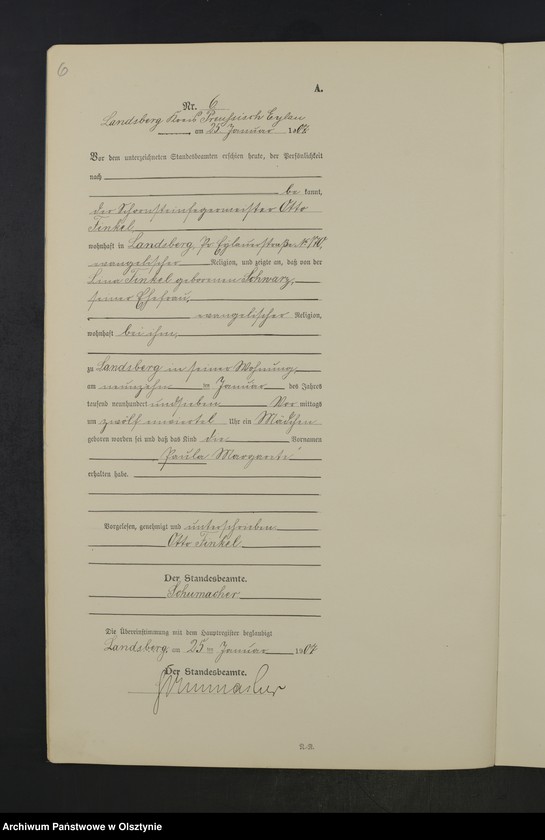 6
A.
Nr. 6
Landsberg Kreis Preußisch Eylau
am 25. Januar 1907
Vor dem unterzeichneten Standesbeamten erschien heute, der Persönlichkeit
nach
be kannt,
der Schornsteinfegermeister Otto
Finkel
wohnhaft in Landsberg, Pr Eylauerstraße
evangelischer Religion, und zeigte an, daß von der
Lina Finkel geborenen Schwarz,
seiner Ehefrau,
evangelischer Religion,
wohnhaft bei ihm,
zu Landsberg in seiner Wohnung,
am neunzehn ten Januar des Jahres
tausend neunhundert und sieben Vor mittags
um zwölf Uhr ein Mädchen
geboren worden sei und daß das Kind die Vornamen
Paula Margarete
erhalten habe.
Vorgelesen, genehmigt und unterschrieben
Otto Finkel
Der Standesbeamte.
Schumacher
Die Übereinstimmung mit dem Hauptregister beglaubigt
Landsberg, am 25 ten Januar 1907
Der Standesbeamte.
Schumacher
R.-B.
Archiwum Państwowe w Olsztynie